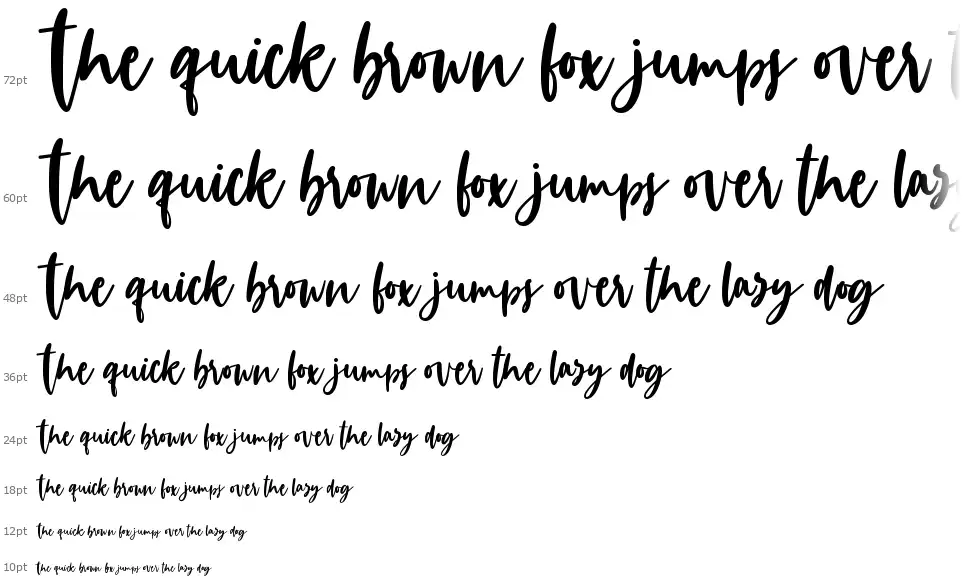 72pt the quick brown fox jumps over t
60pt the quick brown fox jumps over the lasy
48pt the quick brown fox jumps over the lasy dog
36pt the quick brown fox jumps over the lasy dog
24pt the quick brown fox jumps over the lasy dog
18pt the quick brown fox jumps over the lasy dog
12pt the quick brown fox jumps over the lasy dog
10pt the quick brown fox jumps over the lasy dog